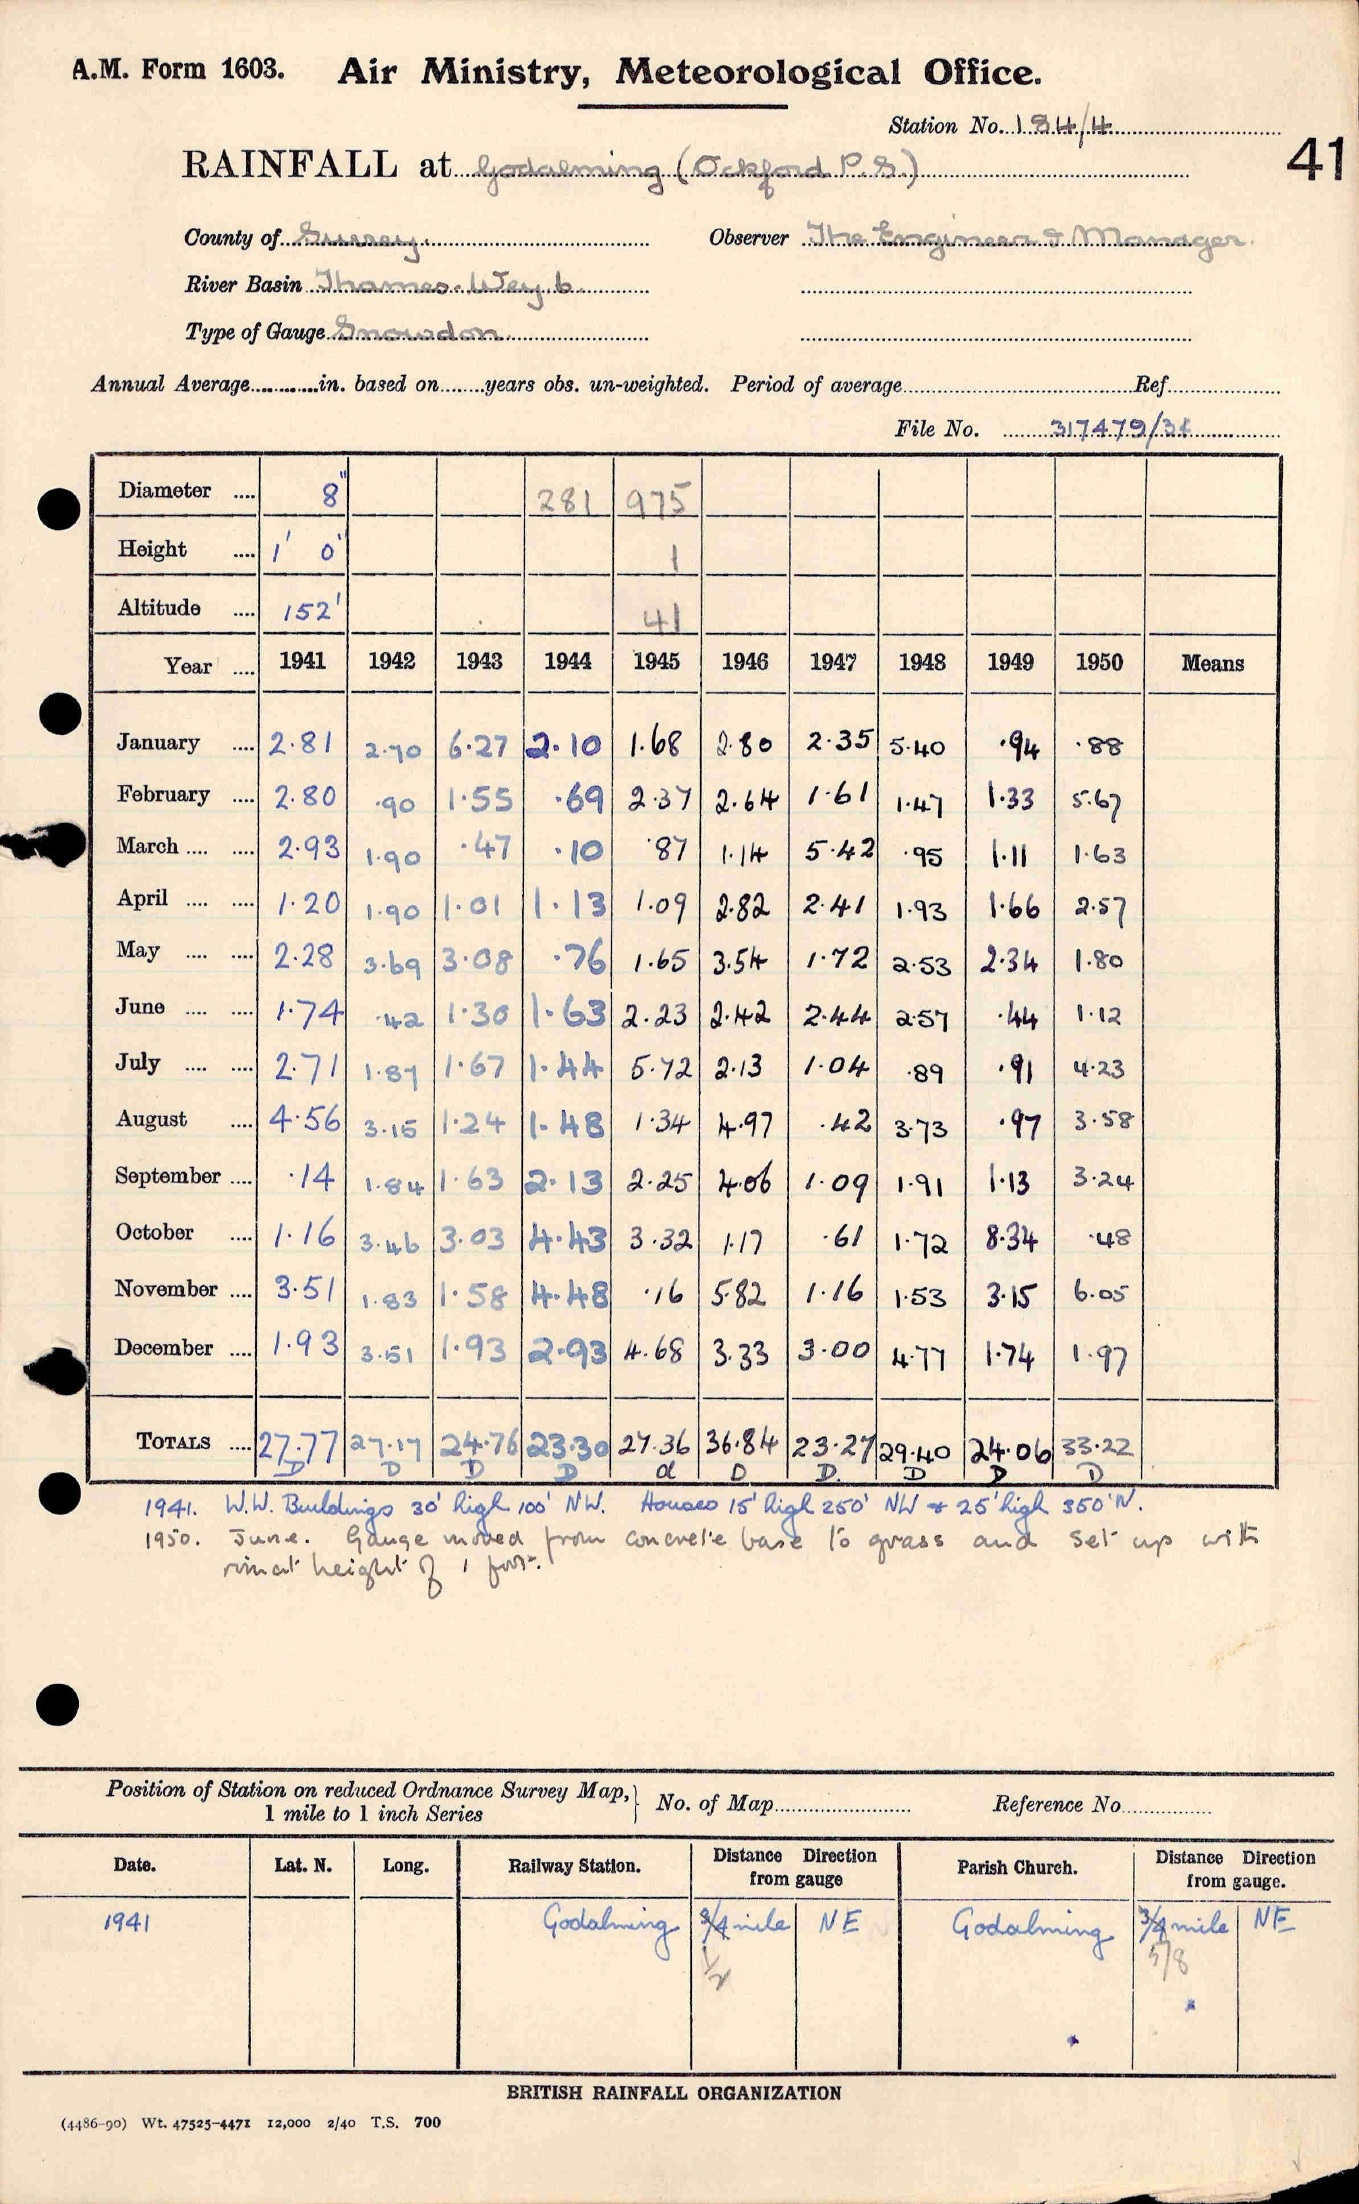 A.M. Form 1603. Air Ministry, Meteorological Office.
Station No. 184/4
41
RAINFALL at Godalming (Ockford P.S.)
County of Surrey. Observer The Engineer & Manager.
River Basin Thames. Wey b.
Type of Gauge Snowdon
Annual Average............in. based on.......years obs. un-weighted. Period of average............Ref............
File No.
Diameter .... 8" 281 975
Height .... 1' 0" 1
Altitude .... 152' 41
Year .... 1941 1942 1943 1944 1945 1946 1947 1948 1949 1950 Means
January .... 2.81 2.70 6.27 2.10 1.68 2.80 2.35 5.40 .94 .88
February .... 2.80 .90 1.55 .69 2.37 2.64 1.61 1.47 1.33 5.67
March .... .... 2.93 1.90 .47 .10 .87 1.14 5.42 .95 1.11 1.63
April .... .... 1.20 1.90 1.01 1.13 1.09 2.82 2.41 1.93 1.66 2.57
May .... .... 2.28 3.69 3.08 .76 1.65 3.54 1.72 2.53 2.34 1.80
June .... .... 1.74 .42 1.30 1.63 2.23 2.42 2.44 2.57 .44 1.12
July .... .... 2.71 1.87 1.67 1.44 5.72 2.13 1.04 .89 .91 4.23
August .... 4.56 3.15 1.24 1.48 1.34 4.97 .42 3.73 .97 3.58
September .... .14 1.84 1.63 2.13 2.25 4.06 1.09 1.91 1.13 3.24
October .... 1.16 3.46 3.03 4.43 3.32 1.17 .61 1.72 8.34 .48
November .... 3.51 1.83 1.58 4.48 .16 5.82 1.16 1.53 3.15 6.05
December .... 1.93 3.51 1.93 2.93 4.68 3.33 3.00 4.77 1.74 1.97
TOTALS .... 27.77 27.17 24.76 23.30 27.36 36.84 23.27 29.40 24.06 33.22
D D D D d D D. D D D
1941. W.W. Buildings 30' high 100' NW. Houses 15' high 250' NW & 25' high 350' N.
1950. June. Gauge moved from concrete base to grass and set up with
rim at height of 1 foot.
Position of Station on reduced Ordnance Survey Map, No. of Map............ Reference No............
1 mile to 1 inch Series
Date. Lat. N. Long. Railway Station. Distance Direction from gauge Parish Church. Distance Direction from gauge.
1941 Godalming 3/4 mile NE Godalming 3/4 mile NE
1/2 5/8
BRITISH RAINFALL ORGANIZATION
(4486-90) Wt. 47525-4471 12,000 2/40 T.S. 700